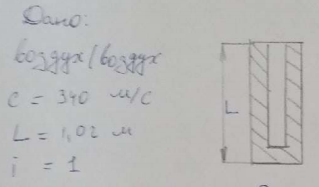 Дано:
воздух/воздух
c = 340 м/с
L = 1,02 м
i = 1
L